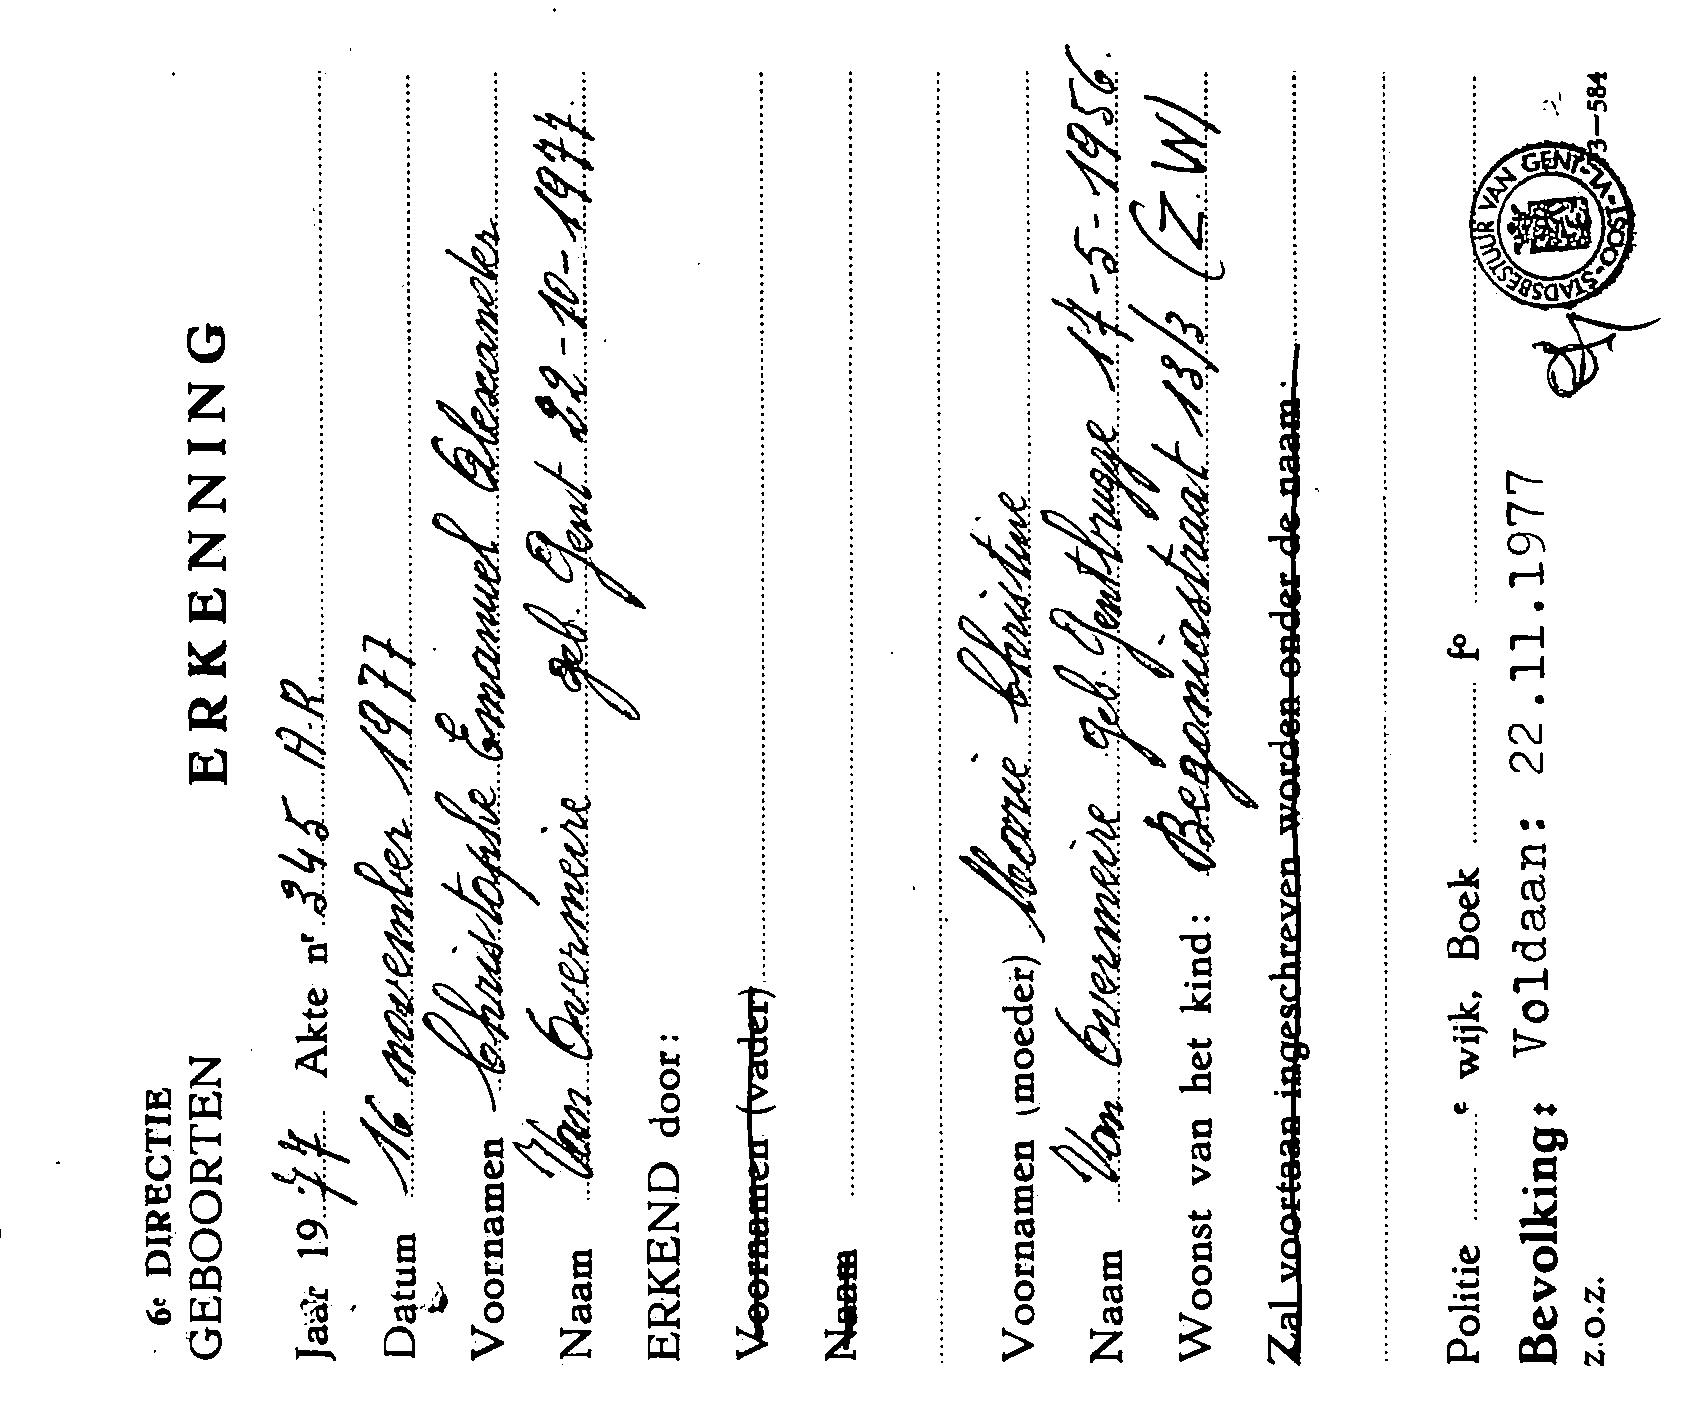 6e DIRECTIE
GEBOORTEN
ERKENNING
Jaar 19 77 Akte nr 345 A.R
Datum 16 november 1977
Voornamen Christophe Emanuel Alexander
Naam Van Overmeire geb. Gent 22-10-1977
ERKEND door:
Voornamen (vader)
Naam
Voornamen (moeder) Marie Christine
Naam Van Overmeire geb. Gentbrugge 17-5-1956.
Woonst van het kind: Begoniastraat 13/3 (Z W)
Zal voortaan ingeschreven worden onder de naam
Politie e wijk, Boek fo
Bevolking: Voldaan: 22.11.1977
z.o.z.
STADSBESTUUR VAN GENT
73-584